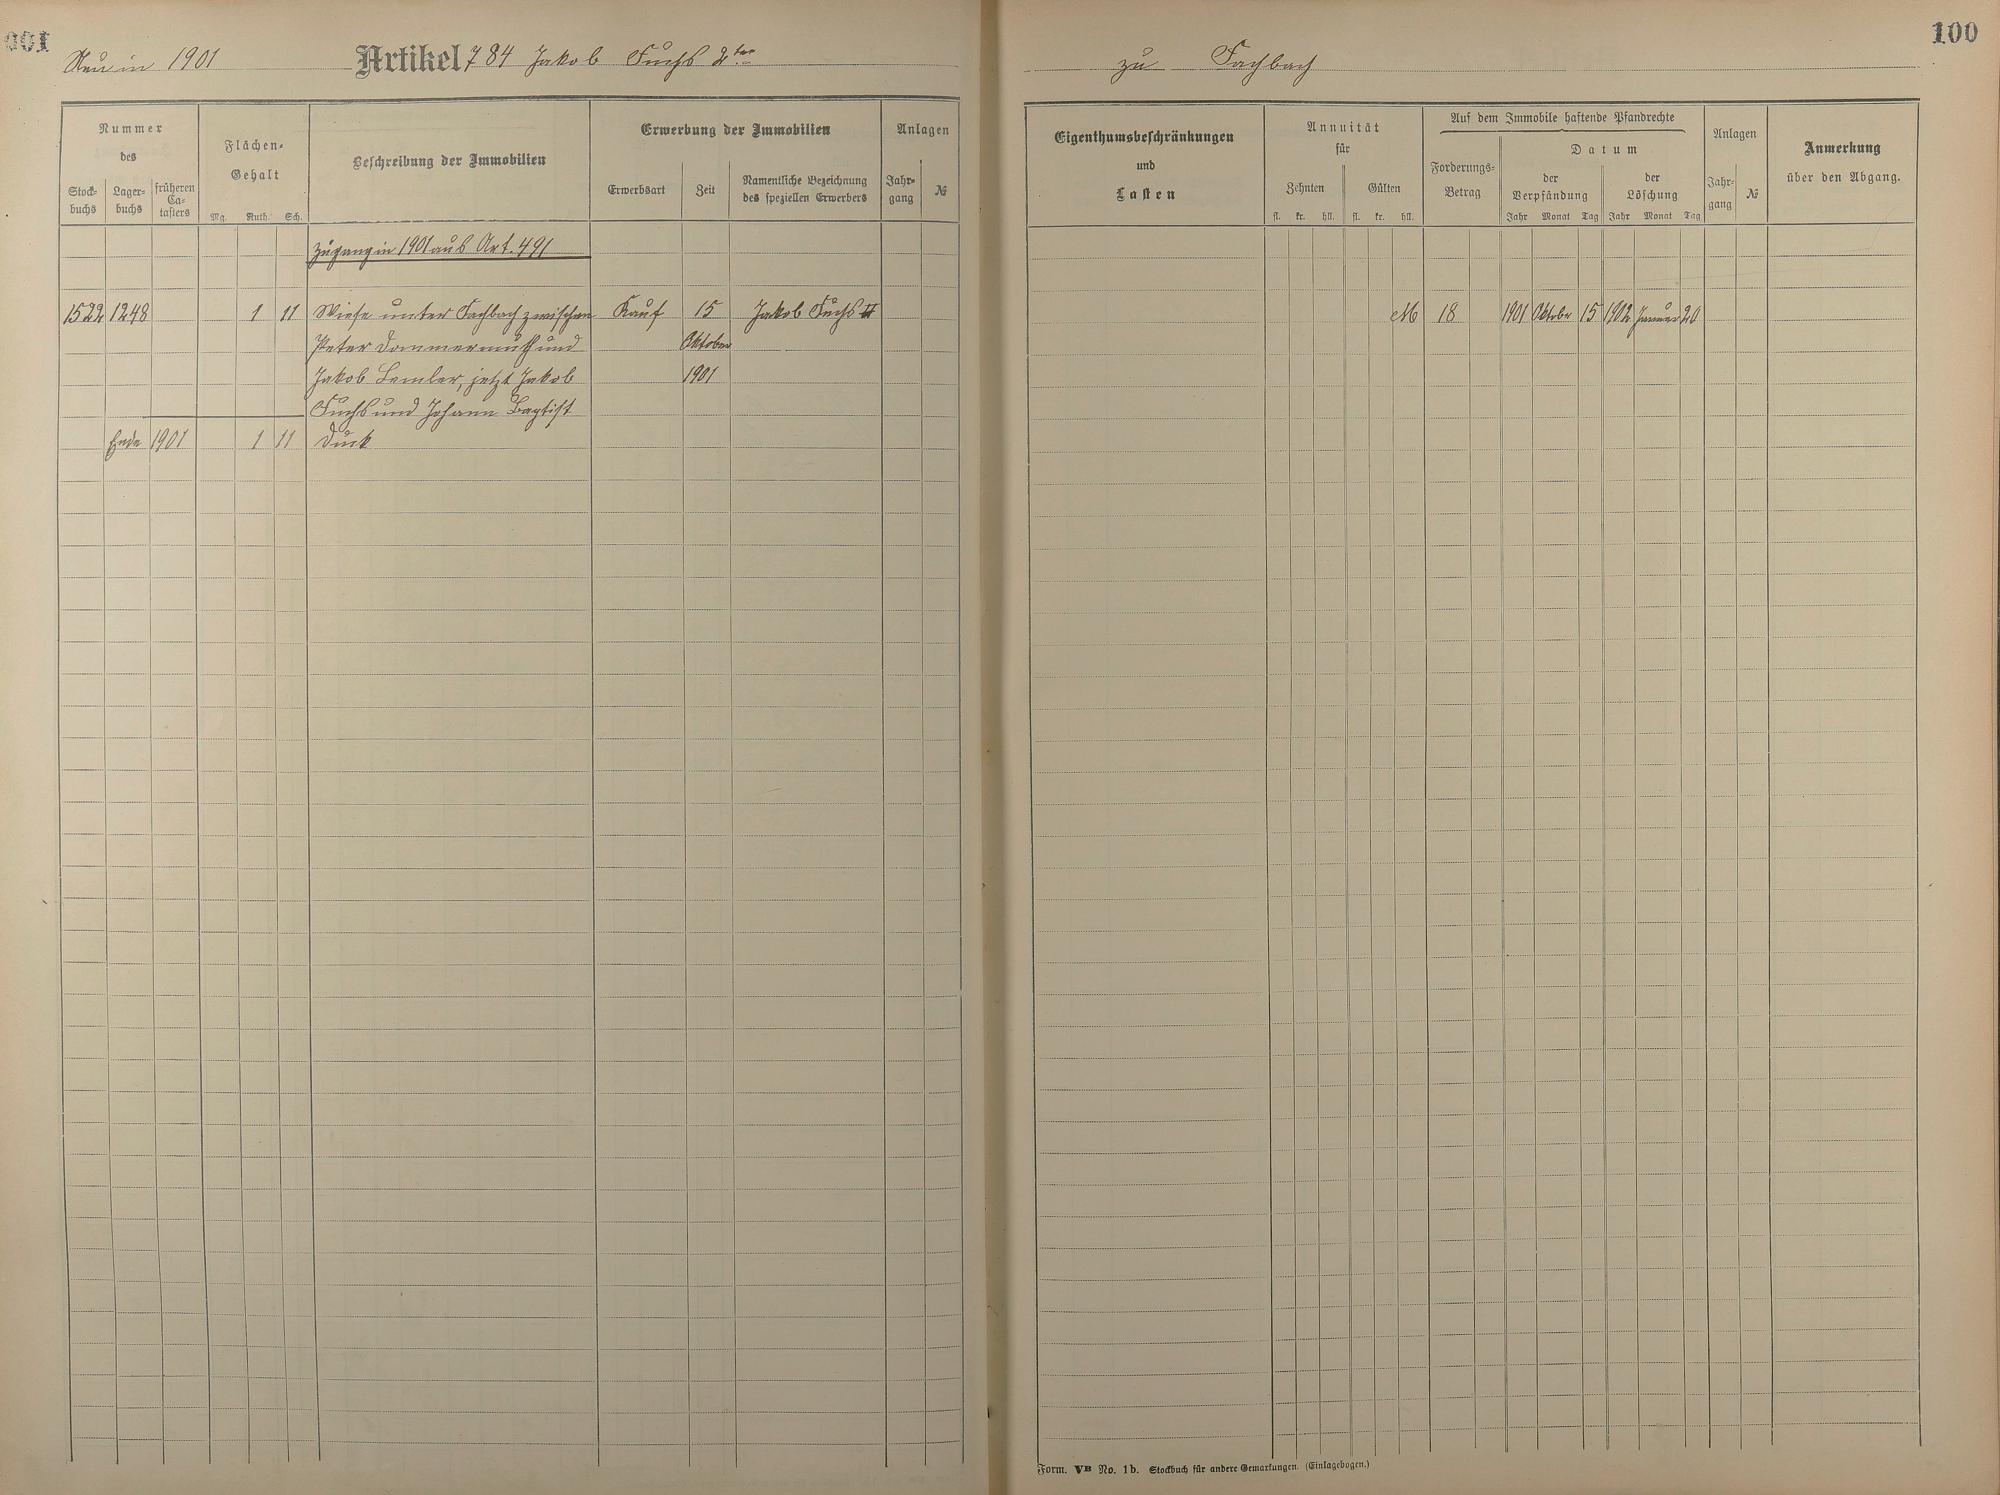 Neu in 1901 Artikel 784 Jakob Fuchs 2ter
zu Fachbach
100
Nummer
des
Stock-
buchs
Lager-
buchs
früheren
Ca-
tasters
Flächen-
Gehalt
Mg. Ruth. Sch.
Beschreibung der Immobilien
Erwerbung der Immobilien
Erwerbsart
Zeit
Namentliche Bezeichnung
des speziellen Erwerbers
Anlagen
Jahr-
gang
№
Eigenthumsbeschränkungen
und
Lasten
Annuität
für
Zehnten
Gülten
fl. kr. hll. fl. kr. hll.
Auf dem Immobile haftende Pfandrechte
Forderungs-
Betrag
Datum
der
Verpfändung
der
Löschung
Jahr Monat Tag Jahr Monat Tag
Anlagen
Jahr-
gang
№
Anmerkung
über den Abgang.
Zugang in 1901 aus Art. 491
1522 1248 1 11 Wiese unter Fachbach zwischen Kauf 15 Jakob Fuchs II
M 18 1901 Oktober 15 1902 Januar 20
Peter Dommermuth und Oktober
Jakob Lemler, jetzt Jakob 1901
Fuchs und Johann Baptist
Ende 1901 1 11 Duck
Form. VB No. 1b. Stockbuch für andere Gemarkungen. (Einlagebogen.)